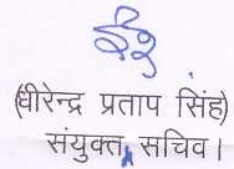 (धीरेन्द्र प्रताप सिंह)
संयुक्त सचिव।